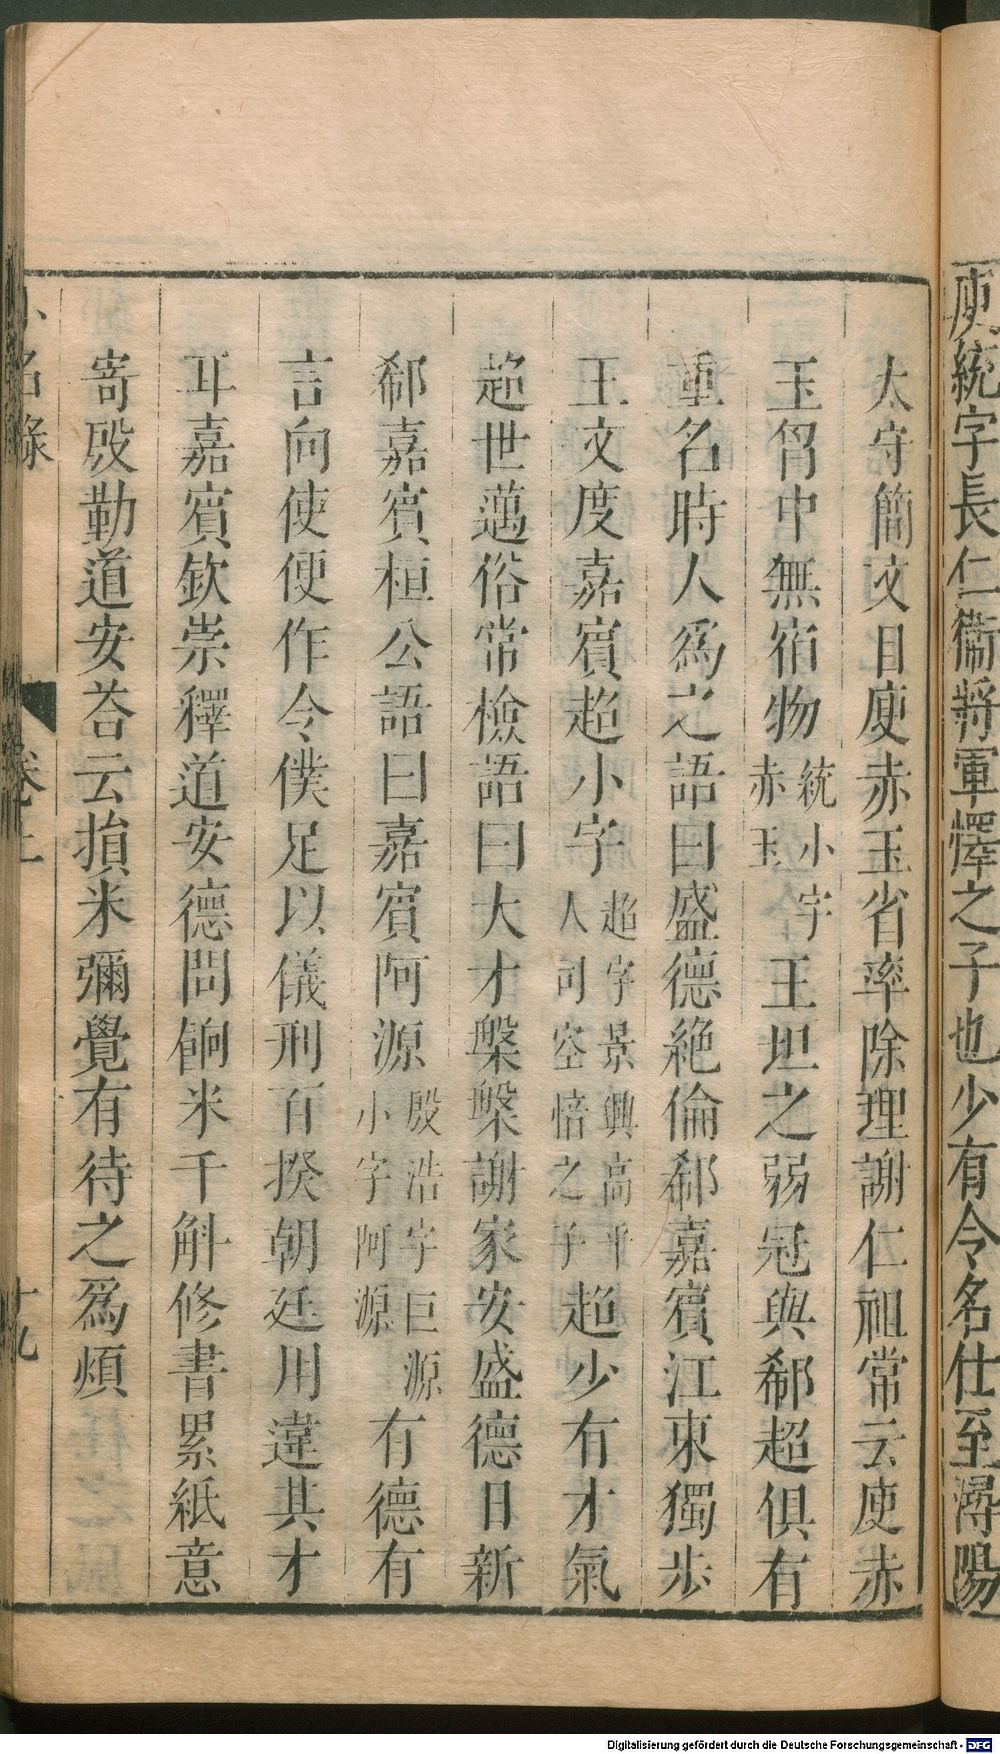 庾統字長仁衞將軍懌之子也少有令名仕至潯陽
太守簡文目庾赤玉省率除理謝仁祖常云庾赤
玉胷中無宿物統小字赤玉王坦之弱冠與郗超俱有
重名時人爲之語曰盛德絶倫郗嘉賓江東獨步
王文度嘉賓超小字超字景興高平人司空愔之子超少有才氣
超世邁俗常檢語曰大才槃槃謝家安盛德日新
郗嘉賓桓公語曰嘉賓阿源殷浩字巨源小字阿源有德有
言向使便作令僕足以儀刑百揆朝廷用違其才
耳嘉賓欽崇釋道安德問餉米千斛修書累紙意
寄殷勤道安荅云損米彌覺有待之爲煩
小名錄 卷上 十九
Digitalisierung gefördert durch die Deutsche Forschungsgemeinschaft - DFG